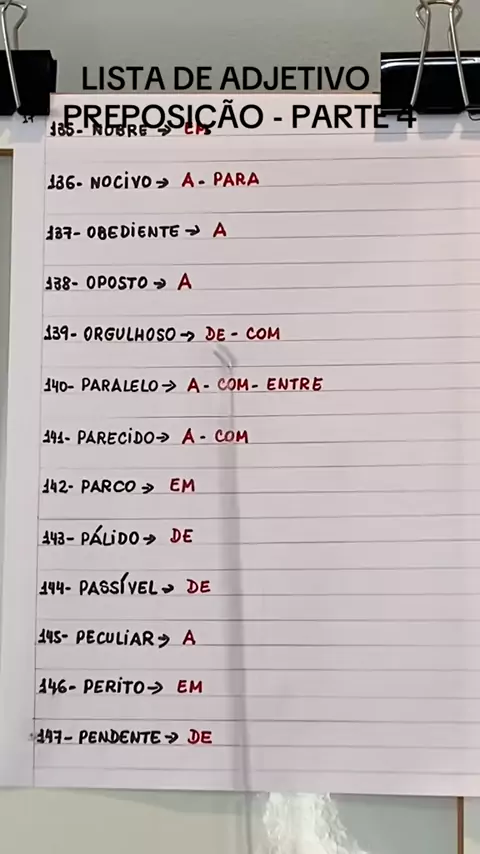 LISTA DE ADJETIVO
PREPOSIÇÃO - PARTE 4
135- NOBRE → EM
136- NOCIVO → A - PARA
137- OBEDIENTE → A
138- OPOSTO → A
139- ORGULHOSO → DE - COM
140- PARALELO → A - COM - ENTRE
141- PARECIDO → A - COM
142- PARCO → EM
143- PÁLIDO → DE
144- PASSÍVEL → DE
145- PECULIAR → A
146- PERITO → EM
147- PENDENTE → DE